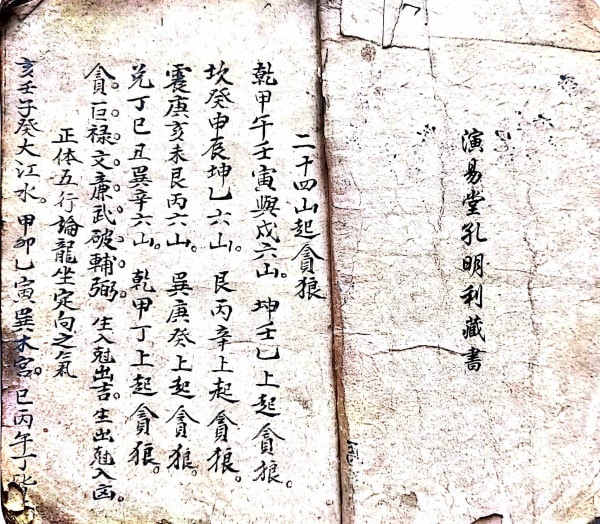 演易堂孔明利藏書
二十四山起貪狼
乾甲午壬寅與戌六山。坤壬乙上起貪狼。
坎癸申辰坤乙六山。艮丙辛上起貪狼。
震庚亥未艮丙六山。巽庚癸上起貪狼。
兌丁巳丑巽辛六山。乾甲丁上起貪狼。
貪。巨。禄。文。廉。武。破。輔。弼。生入尅出吉。生出尅入凶。
正体五行論龍坐定向之氣
亥壬子癸大江水。甲卯乙寅巽木宮。巳丙午丁